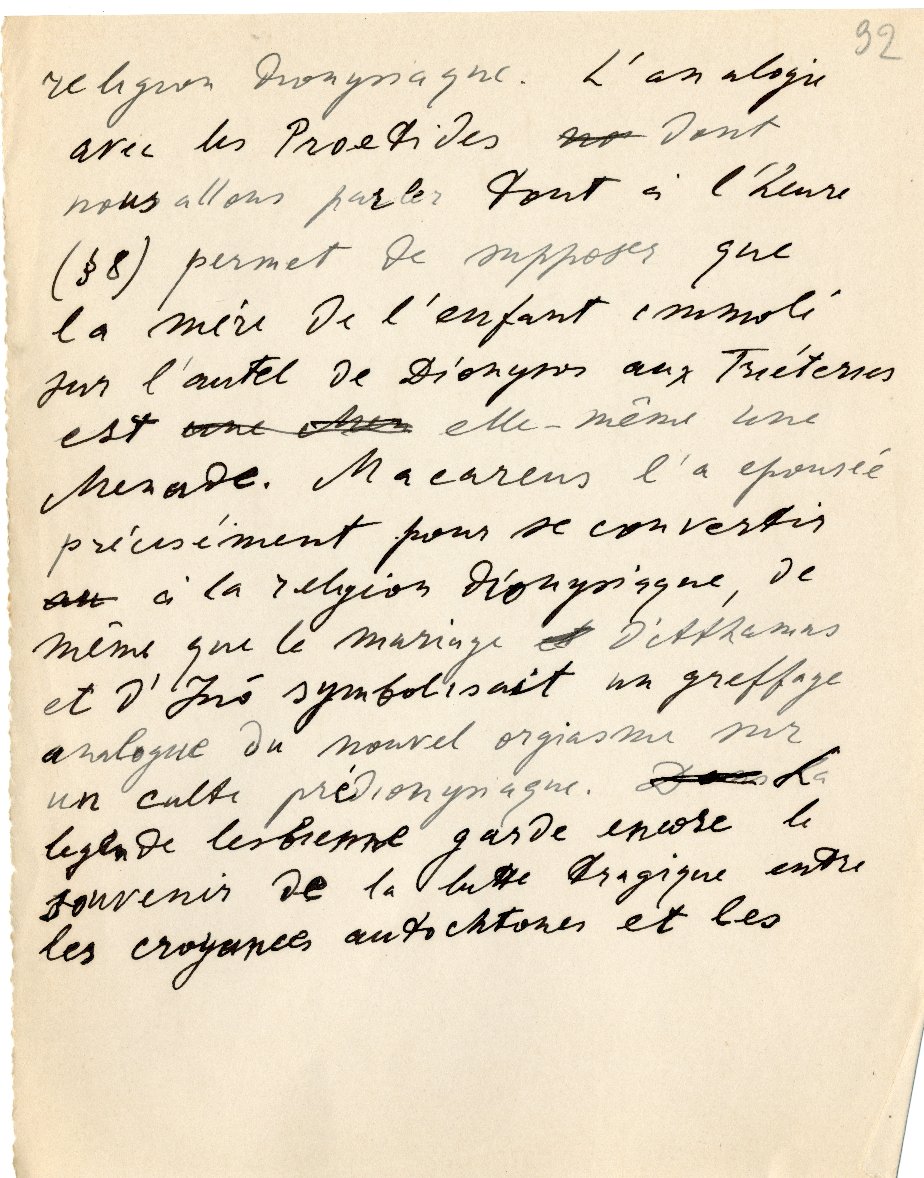 92
religion dionysiaque. L'analogie
avec les Proetides no dont
nous allons parler tout à l'heure
(§8) permet de supposer que
la mère de l'enfant immolé
sur l'autel de Dionysos aux Triéteries
est une Men elle-même une
Menade. Macareus l'a epousée
précisément pour se convertir
au à la religion dionysiaque, de
même que le mariage et d'Athamas
et d'Inô symbolisait un greffage
analogue du nouvel orgiasme sur
un culte prédionysiaque. Dans La
legende lesbienne garde encore le
souvenir de la lutte tragique entre
les croyances autochtones et les